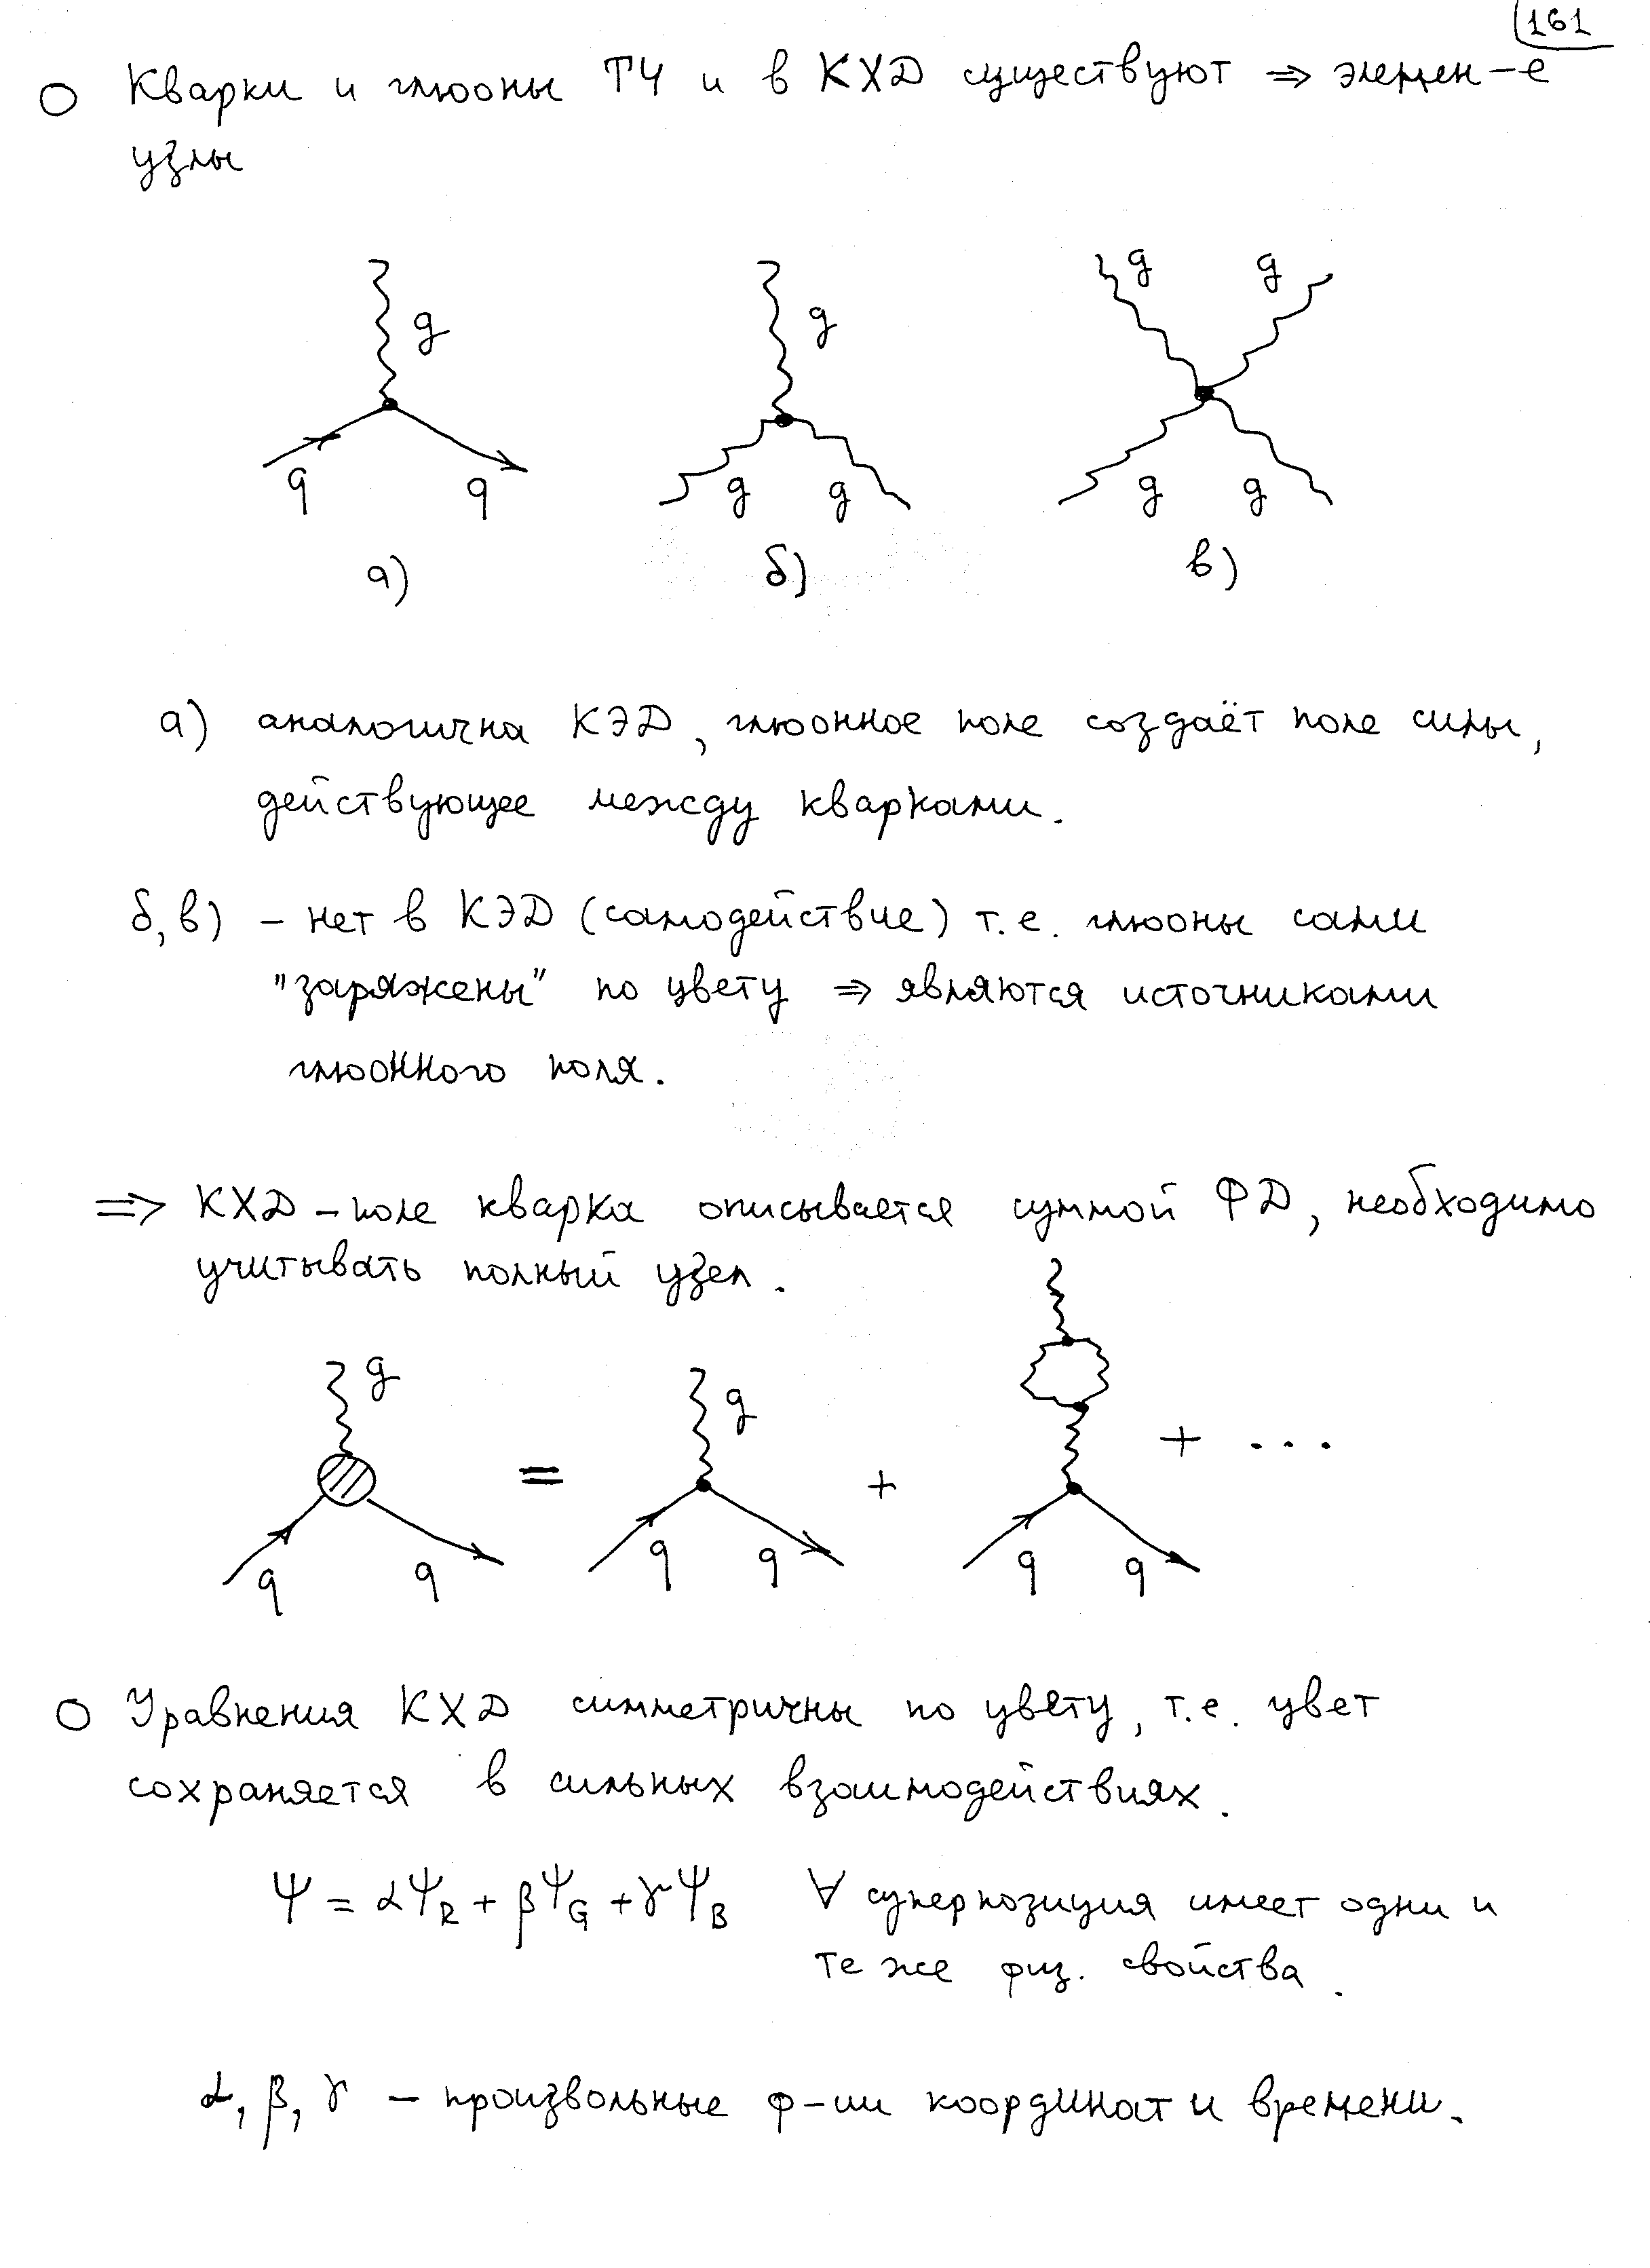 161
○ Кварки и глюоны ТЧ и в КХД существуют ⇒ элемен-е
узлы
g g g g
g g
q q g g g g
а) б) в)
а) аналогична КЭД, глюонное поле создаёт поле силы,
действующее между кварками.
б, в) – нет в КЭД (самодействие) т.е. глюоны сами
"заряжены" по цвету ⇒ являются источниками
глюонного поля.
⇒ КХД – поле кварка описывается суммой ФД, необходимо
учитывать полный узел.
g g
= + + ...
q q q q q q
○ Уравнения КХД симметричны по цвету, т.е. цвет
сохраняется в сильных взаимодействиях.
Ψ = αΨ_R + βΨ_G + γΨ_B ∀ суперпозиция имеет одни и
те же физ. свойства.
α, β, γ – произвольные ф-ии координат и времени.